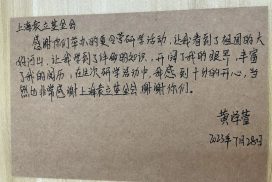 上海袁立基金会
感谢你们举办的夏令营研学活动,让我看到了祖国的大
好河山,让我学到了课外的知识,开阔了我的眼界,丰富
了我的阅历,在此次研学活动中,我感到十分的开心,当
然也非常感谢上海袁立基金会谢谢你们。
黄
2023年7月28日